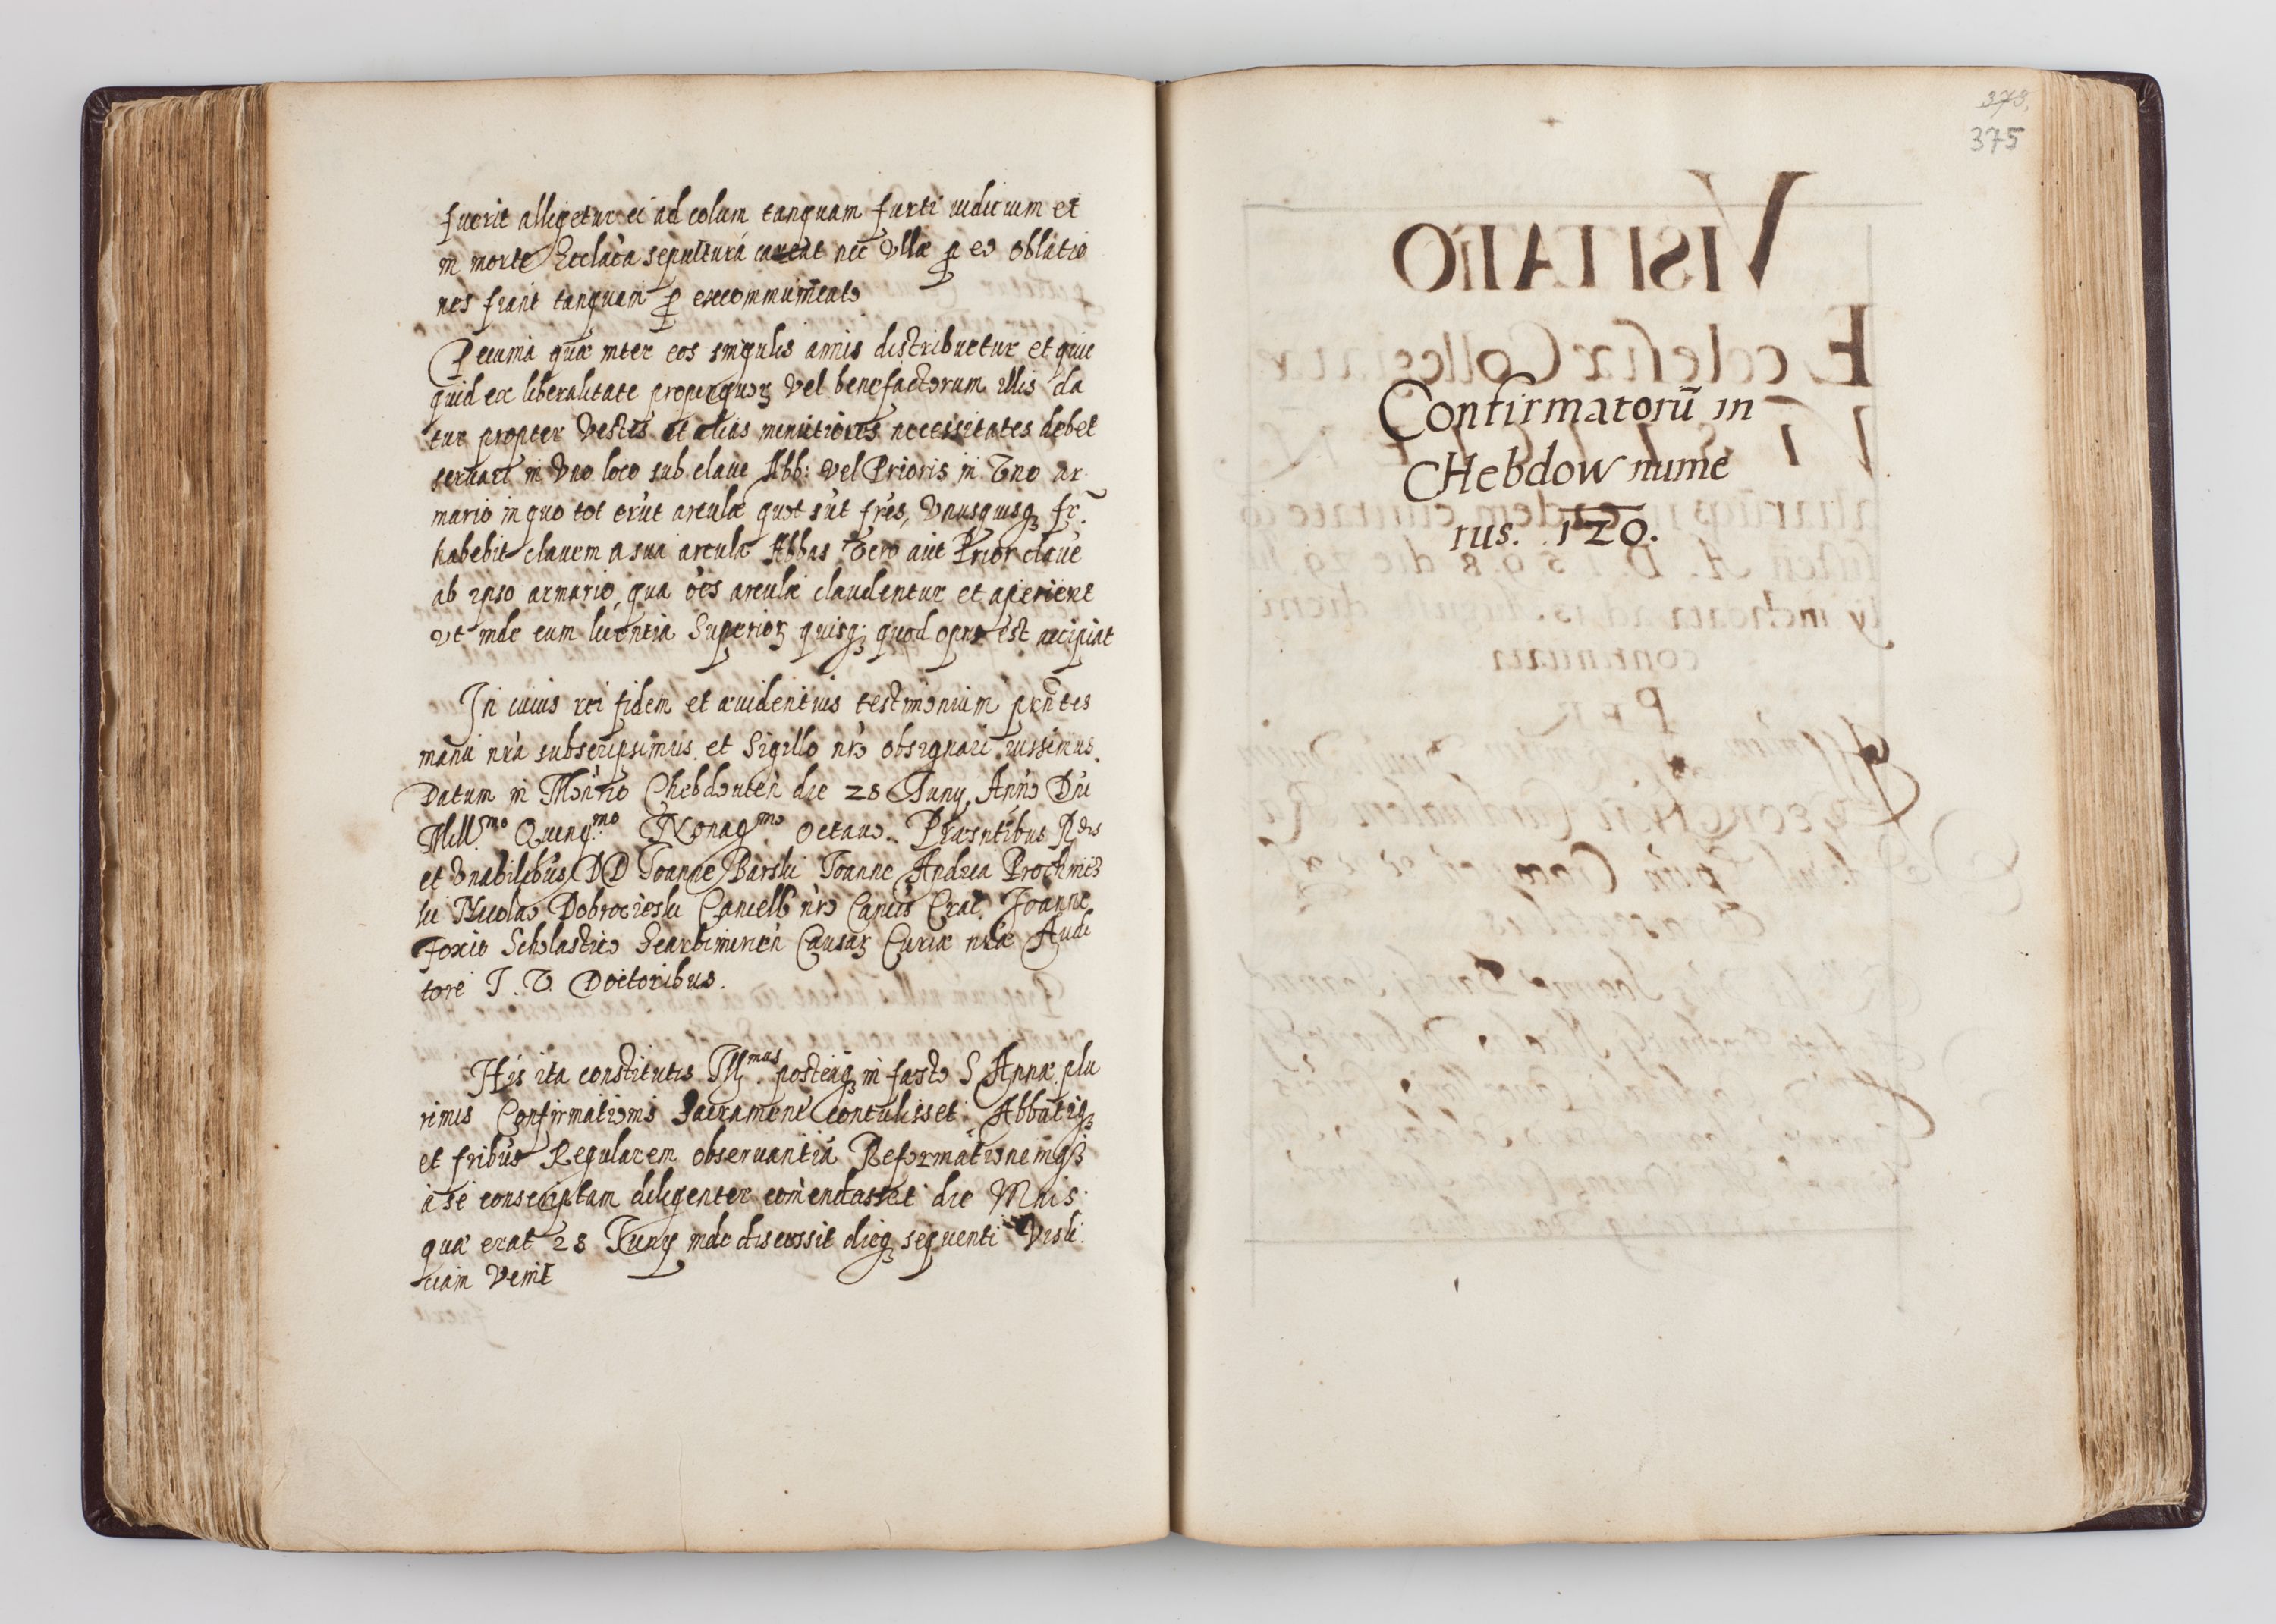 fuerit alligetur ei ad colum tanquam furti iudicium et
in morte Ecclãca sepulturá careat nec vlla ꝓ eo oblatio
nes fiant tanquam ꝓ excommunicato
Pecunia quæ inter eos singulis annis distribuetur et quic
quid ex liberalitate propinquoꝝ vel benefactorum illis da
tur propter Vestes et alias minutiores necessitates debet
seruari in Vno loco sub claue Abb: vel Prioris in Vno ar
mario in quo tot erũt arculæ quot sũt frẽs, Vnusquisqꝫ fr̃.
habebit clauem a sua arcula Abbas Vero aut Prior claue
ab ipso armario, qua oẽs arculæ claudentur et aperient
vt inde cum licentia Superioꝝ quisqꝫ quod opus est recipiat
In cuius rei fidem et æuidentius testimonium prñtes
manu nr̃a subscripsimus et Sigillo nr̃o obsignari iussimus.
Datum in Mon̄rio Chebdouien̄ die 28 Juny Anno Dñi
Mill.mo Quinq.mo Nonag.mo Octauo. Præsntibus R.dis
et Vnabilibus DD Joanne Barski Joanne Andrea Prochnic
ki Nicolao Dobrocieski Cancell̃ nr̃o Canc̃is Crac̃. Joanne
Foxio Scholastico Scarbimirien̄ Causaꝝ Curiæ nr̃æ Audi
tore J. V. Doctoribus.
His ita constitutis Ill.mus posteaqꝫ in festo S Annæ plu
rimis Confirmationis Sacrament̃ contulisset Abbatiqꝫ
et fribus Regularem obseruantiã Reformationemqꝫ
à se conscriptam diligenter com̃endasset die
quæ erat 28 Juny inde discessit dieqꝫ sequenti Visli
ciam Venit
375
Confirmatorũ in
CHebdow nume
rus. 120.